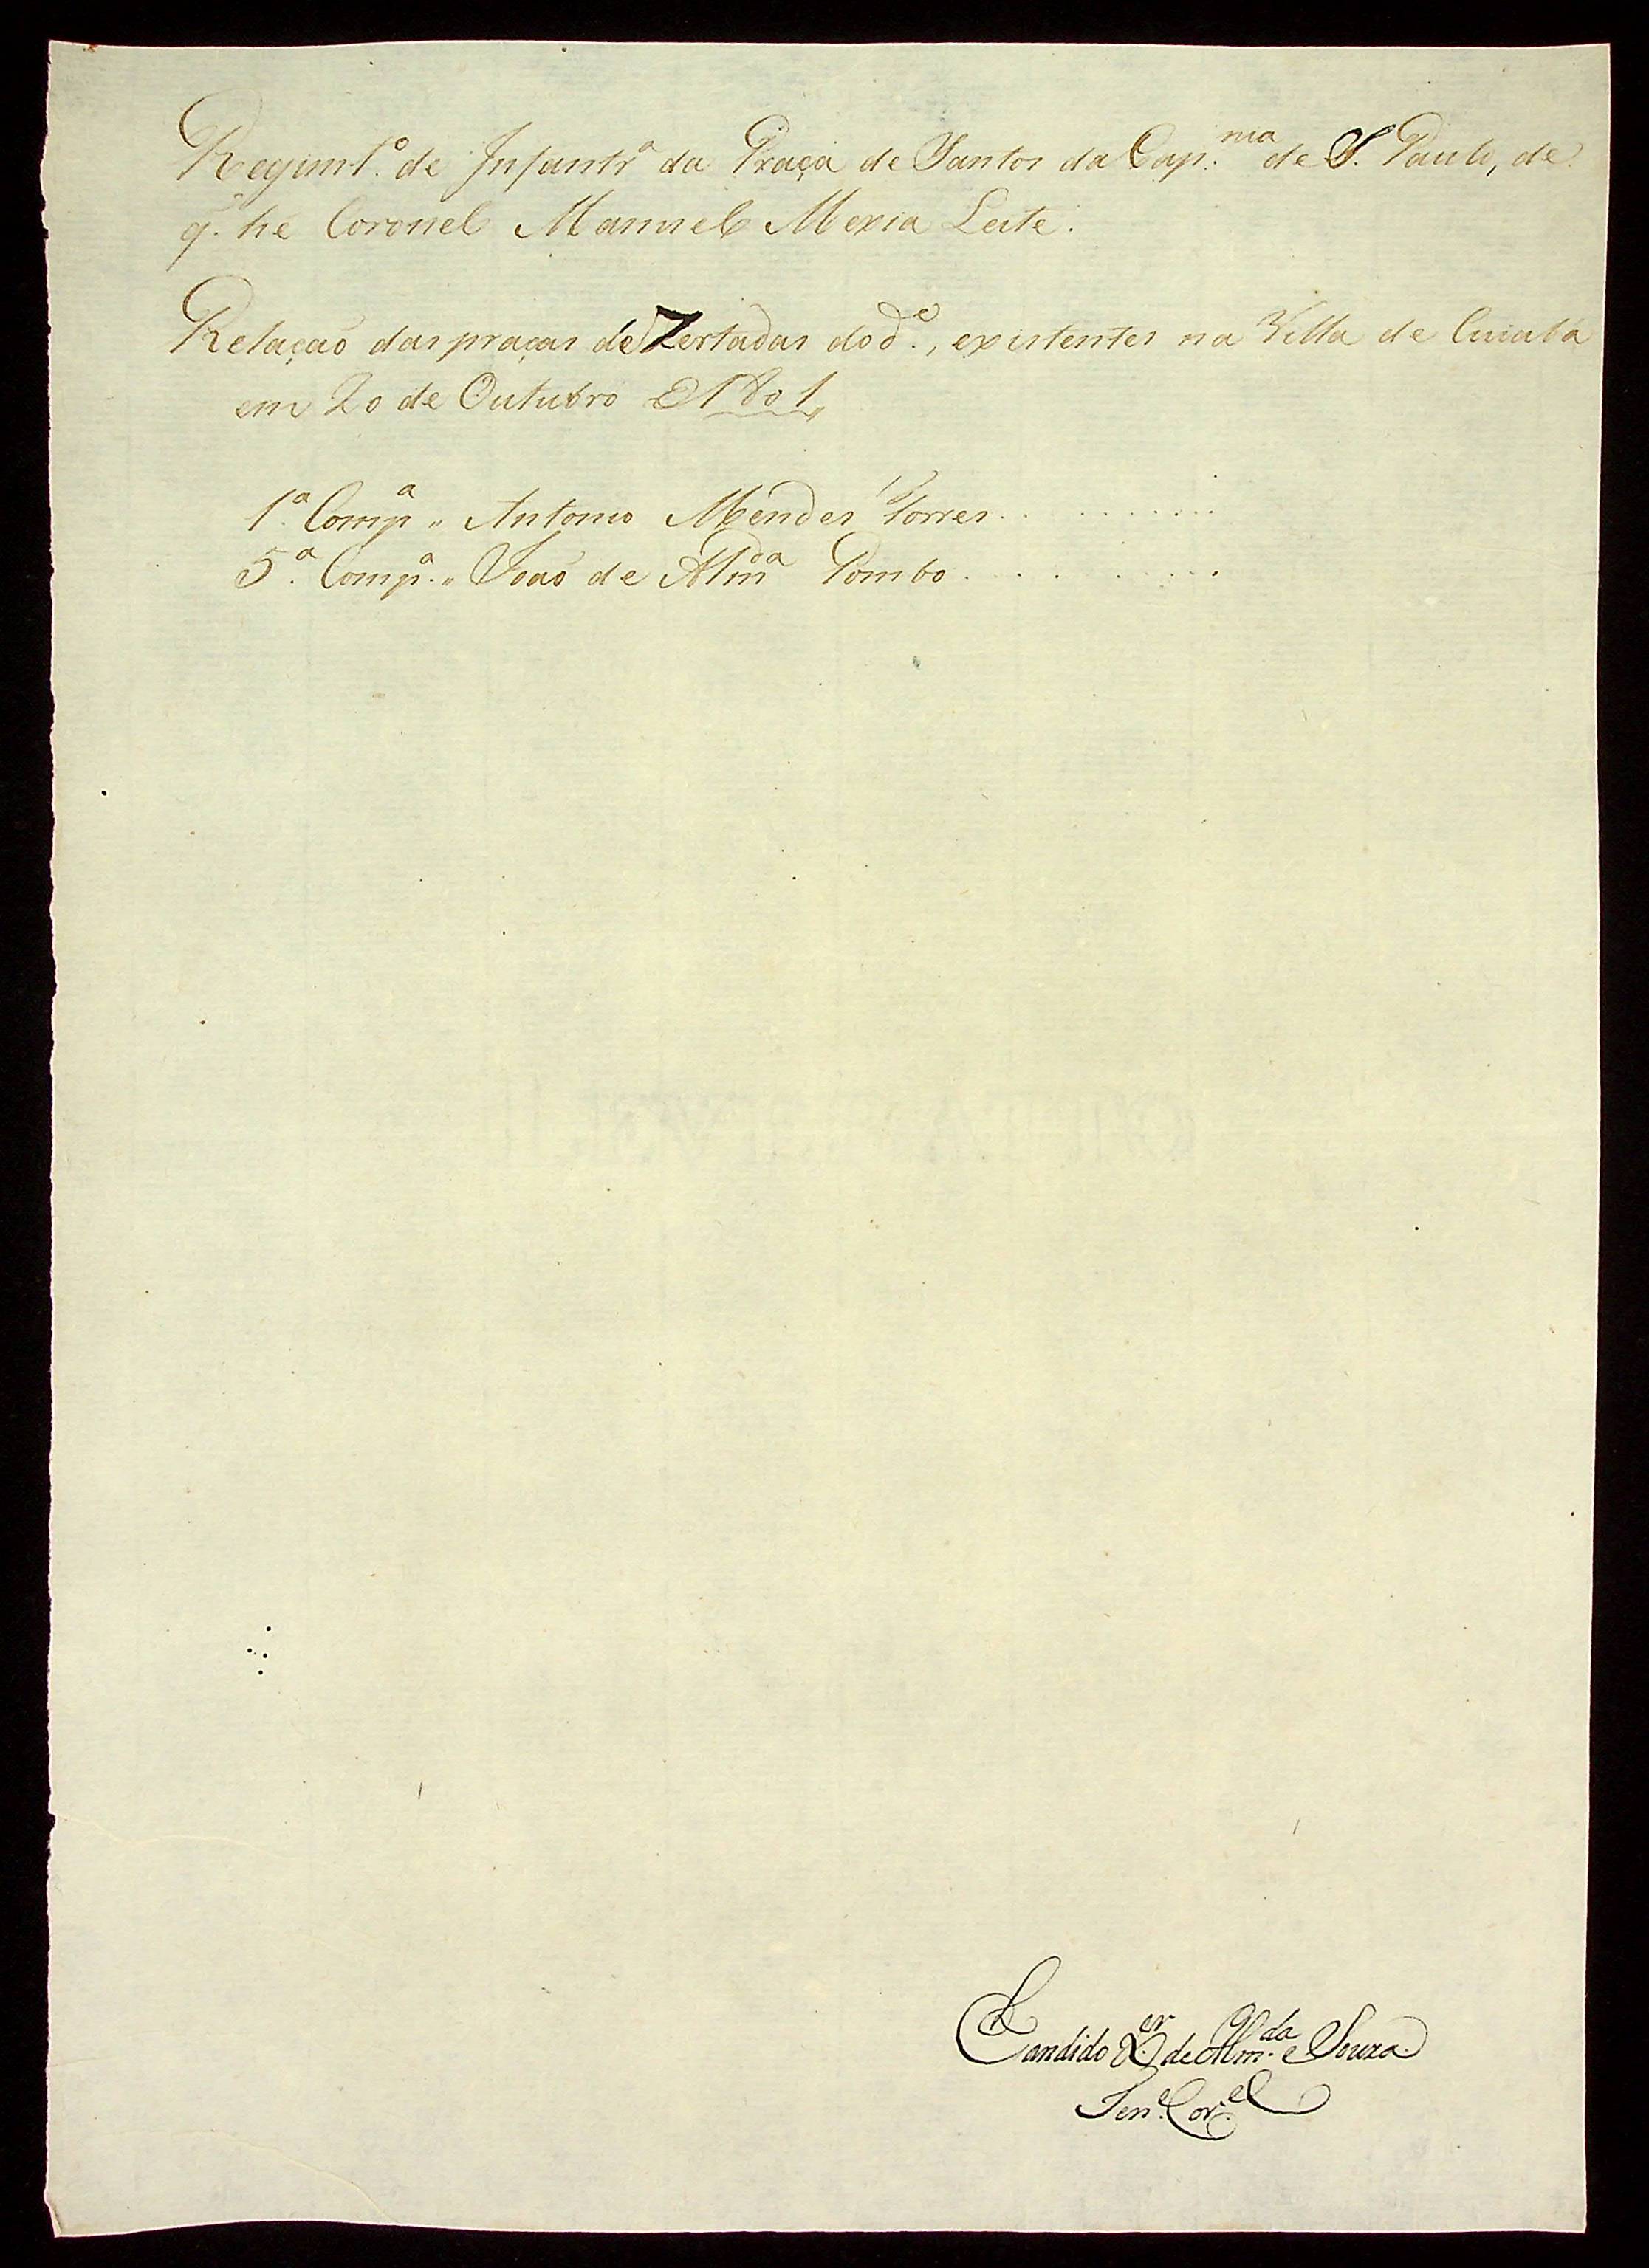 Regim.to de Infantr.a da Praça de Santos da Cap.nia de S. Paulo, de
q. he Coronel Manuel Mexia Leite.
Relação das praças deZertadas do d.o, existentes na Villa de Cuiabá
em 20 de Outubro D 1801,,
1.a Comp.a ,, Antonio Mendes Torres . . . . . . . . .
5.a Comp.a ,, João de Alm.da Pombo . . . . . . . . .
Candido X.er de Alm.da e Souza
Ten.e Cor.el